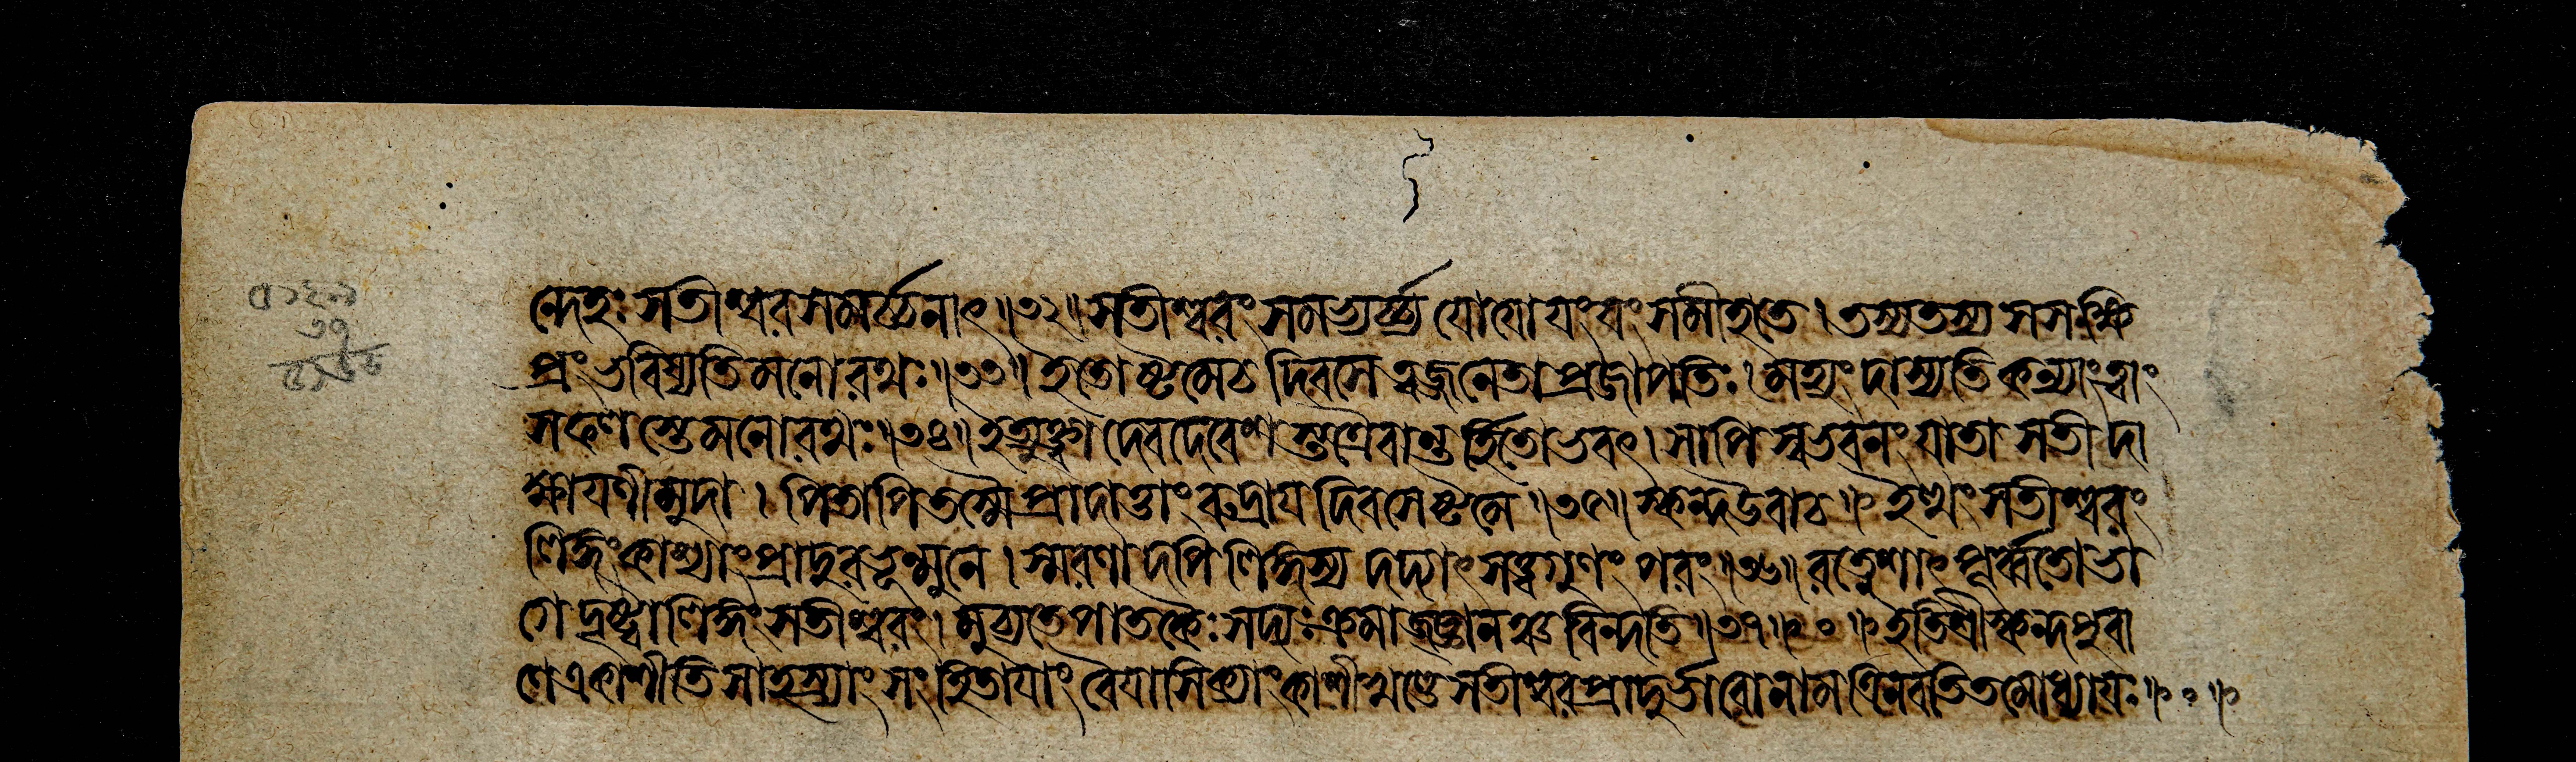 ন্দেহঃ সতীশ্বরসমর্চ্চনাৎ ॥৩২॥ সতীশ্বরং সমভ্যর্চ্চ্য যোযোযংযং সমীহতে । তস্যতস্য সসংক্ষি
প্রং ভবিষ্যতি মনোরথঃ ॥৩৩॥ ইতোষ্টমেচ দিবসে ত্বজ্জনেতা প্রজাপতিঃ । মহ্যং দাস্যতি কন্যাং ত্বাং
সফলস্তে মনোরথঃ ॥৩৪॥ ইত্যুক্ত্বা দেবদেবেশস্তত্রৈবান্তর্হিতোভবৎ । সাপি স্বভবনং যাতা সতী দা
ক্ষাযণী মুদা । পিতাপি তস্মৈ প্রাদাত্তাং রুদ্রায দিবসেষ্টমে ॥৩৫॥ স্কন্দউবাচ ॥ ইত্থং সতীশ্বরং
লিঙ্গং কাশ্যাং প্রাদুরভূন্মুনে । স্মরণাদপি লিঙ্গস্য দদ্যাৎ সত্ত্বগুণং পরং ॥৩৬॥ রত্নেশাৎ পূর্ব্বতোভা
গে দৃষ্ট্বা লিঙ্গং সতীশ্বরং । মুচ্যতে পাতকৈঃ সদ্যঃ ক্রমাজ্জ্ঞানঞ্চ বিন্দতি ॥৩৭॥ ০ ॥ ইতি শ্রীস্কন্দপুরা
ণে একাশীতিসাহস্র্যাং সংহিতাযাং বৈযাসিক্যাং কাশীখণ্ডে সতীশ্বরপ্রাদুর্ভাবোনাম ত্রিনবতিতমোধ্যাযঃ ॥ ০ ॥